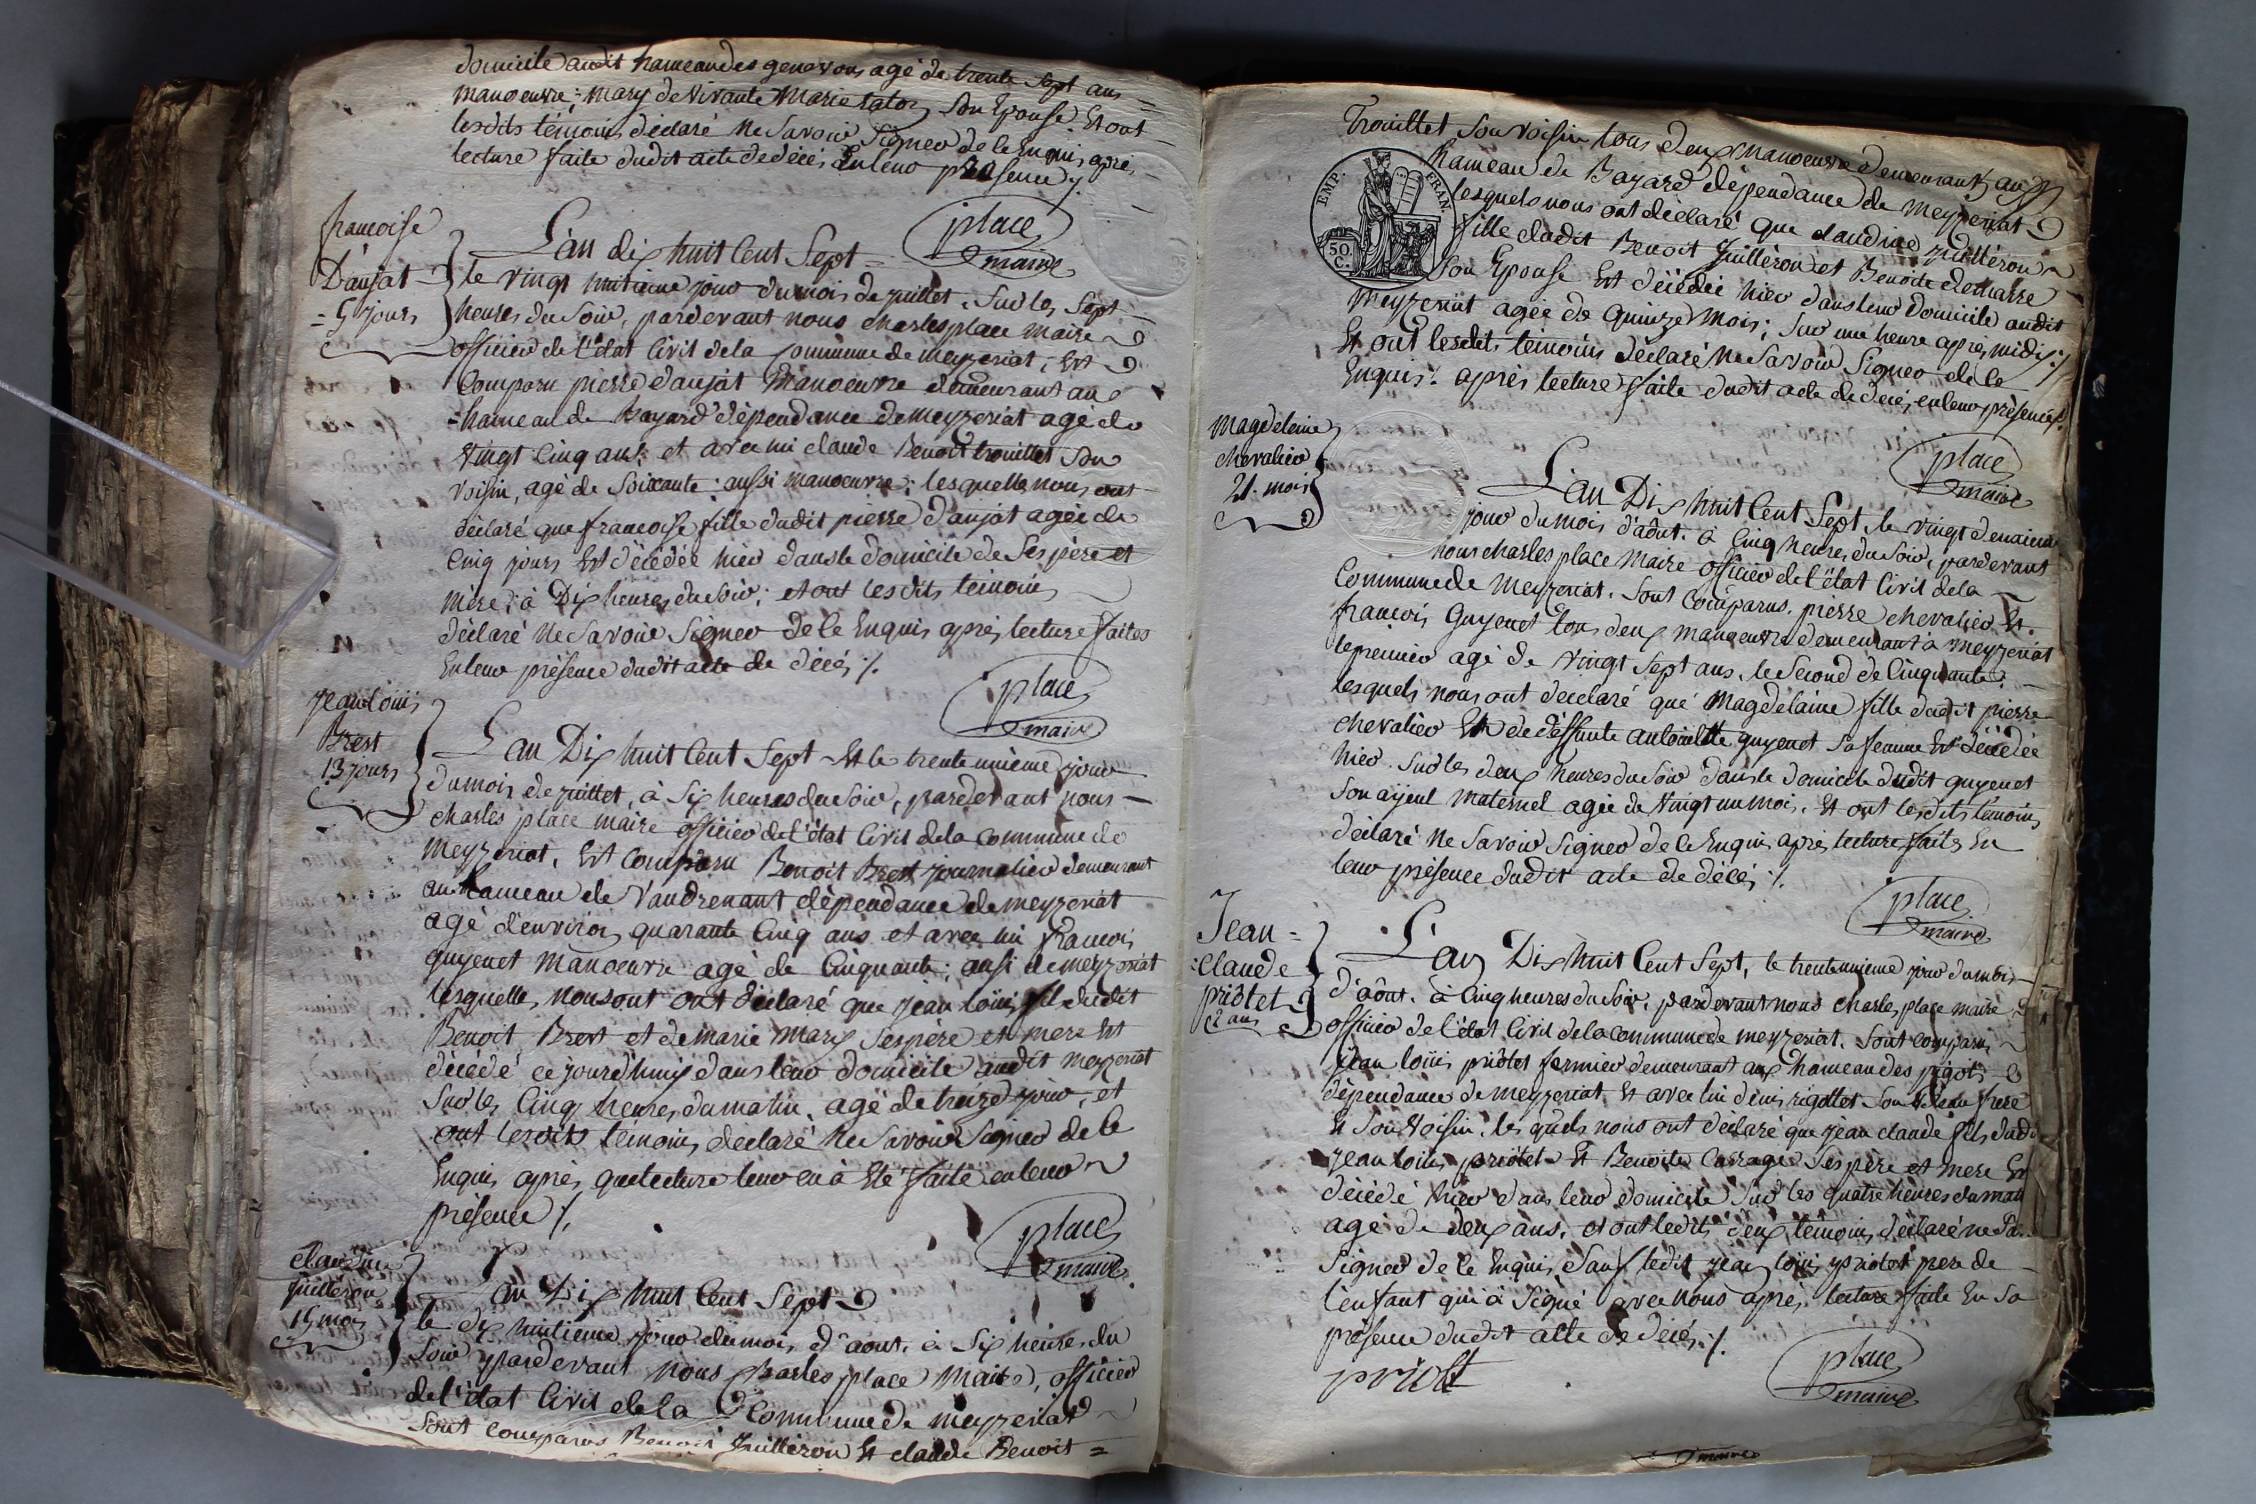 domicile audit hameau des genevons agé de trente Sept ans =
manoeuvre; mary de vivante Marie raton Son Epouse. Et ont
lesdits témoins déclaré Ne Savoir Signer de ce Enquis, après
lecture faite dudit acte de décés en leur présence ./.
place
maire
francoise
Daujat
= 5 jours
L'an dix huit Cent Sept =
le vingt huitieme jour du mois de juillet. Sur les Sept
heures du Soir, pardevant nous charles place maire
officier de l'état Civil de la Commune de meyzeriat, Est
Comparu pierre daujat Manoeuvre demeurant au
=hameau de Bayard dépendance de meyzeriat agé de
Vingt Cinq ans; et avec lui claude Benoit trouillet Son
voisin, agé de Soixante; aussi manoeuvre; lesquelle nous ont
déclaré que francoise fille dudit pierre daujat agée de
Cinq jours Est décédée hier dans le domicile de Ses père et
mère; à Dix heures du Soir; et ont lesdits temoins
déclaré Ne Savoir Signer de ce Enquis après lecture faites
En leur présence dudit acte de décés ./.
place
maire
jean louis
Brest
13 jours
L'an Dix huit Cent Sept Et le trente unième jour
du mois de juillet, à Six heures du Soir, pardevant nous
charles place maire officier de l'état Civil de la Commune de
Meyzeriat, Est Comparu Benoit Brest journalier demeurant
au hameau de Vaudrenant dépendance de meyzeriat
agé d'environ quarante Cinq ans et avec lui francois
guyenet manoeuvre agé de Cinquante; ausi de meyzeriat
lesquelle, nous ont ont déclaré que jean louis fils dudit
Benoit Brest et de marie Marie Ses père et mere Est
décédé ce jourd'huy dans leur domicile audit meyzeriat
Sur les Cinq heures du matin, agé de treize jour, et
ont lesdits témoins déclaré Ne Savoir Signer de ce
Enquis après que lecture leur en à Eté faite en leur
présence ./.
place
maire
claudine
juilléron
15 mois
L'an Dix huit Cent Sept
le dix huitieme jour du mois d'aout. à Six heures du
Soir pardevant nous Charles place Maire, officier
de l'état Civil de la Commune de meyzeriat
Sont comparus Benoit Juilléron Et claude Benoit =
Trouillet Son voisin tous deux manoeuvre demeurant au
hameau de Bayard dépendance de meyzeriat
lesquels nous ont déclaré que claudine juilléron
fille dudit Benoit Juilléron et Benoite demarre
Son Epouse Est décédée hier dans leur domicile audit
Meyzeriat agée de quinze mois; Sur une heure après midi ./.
Et ont lesdits témoins déclaré Ne Savoir Signer de ce
Enquis. après lecture faite dudit acte de décés en leur présence ./.
EMP. FRAN
50
C.
place
maire
Magdelaine
chevalier
21. mois
L'an Dix huit Cent Sept le vingt deuxieme
jour du mois d'aôut. à Cinq heures du Soir, pardevant
nous charles place Maire officier de l'état Civil de la
Commune de Meyzeriat. Sont Comparus. pierre chevalier Et.
francois Guyenet tous deux manoeuvre demeurant à meyzeriat
le premier agé de Vingt Sept ans, le Second de Cinquante.
lesquels nous ont declaré que Magdelaine fille dudit pierre
chevalier Et de déffunte antoinette guyenet Sa femme Est décédée
hier. Sur les deux heures du Soir dans le domicile dudit guyenet
Son ayeul maternel agée de Vingt un mois. Et ont lesdits témoins
déclaré Ne Savoir Signer de ce Enquis après lecture faites En
leur présence dudit acte de décés ./.
place
maire
Jean =
:claude
priôtet
2 ans
L'an Dix huit Cent Sept, le trente unieme jour du mois
d'aôut. à Cinq heures du Soir. pardevant nous charles place maire
officier de l'état Civil de la commune de meyzeriat. Sont comparus
jean louis priôtet fermier demeurant aux hameau des pigots
dépendance de meyzeriat, Et avec lui denis rigottet Son Beau frere
Et Son Voisin. lesquels nous ont déclaré que jean claude fils dudit
jean louis priotet Et Benoite Carrage Ses père et mere Est
décédé hier dans leur domicile Sur les quatre heures du matin
agé de deux ans. et ont ledits deux témoins déclaré ne Sa..
Signer de ce Enquis, Sauf ledit jean louis priotet pere de
l'enfant qui à Signé avec Nous après lecture faite En Sa
présence dudit acte de décés ./.
priolt
place
maire
maire